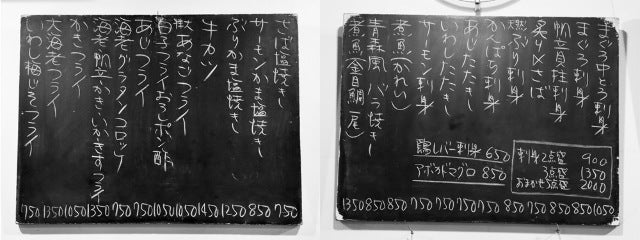 まぐろ中とろ刺身 1050
まぐろ刺身 850
帆立貝柱刺身 850
炙り〆さば 750
天然ぶり刺身 850
かんぱち刺身 750
あじたたき 750
いわしたたき 750
サーモン刺身 750
煮魚(かれい) 850
青森風バラ焼き 850
煮魚(金目鯛一尾) 1350
鶏レバー刺身 650
アボカドマグロ 850
刺身2点盛 900
3点盛 1350
おまかせ5点盛 2000
さば塩焼き 750
サーモンかま塩焼き 850
ぶりかま塩焼き 1250
牛カツ 1450
あなごフライ 1050
白子フライおろしポン酢 1050
あじフライ 750
海老グラタンコロッケ 750
海老帆立かきいかきすフライ 1350
かきフライ 1050
大海老フライ 1350
いわし梅じそフライ 750